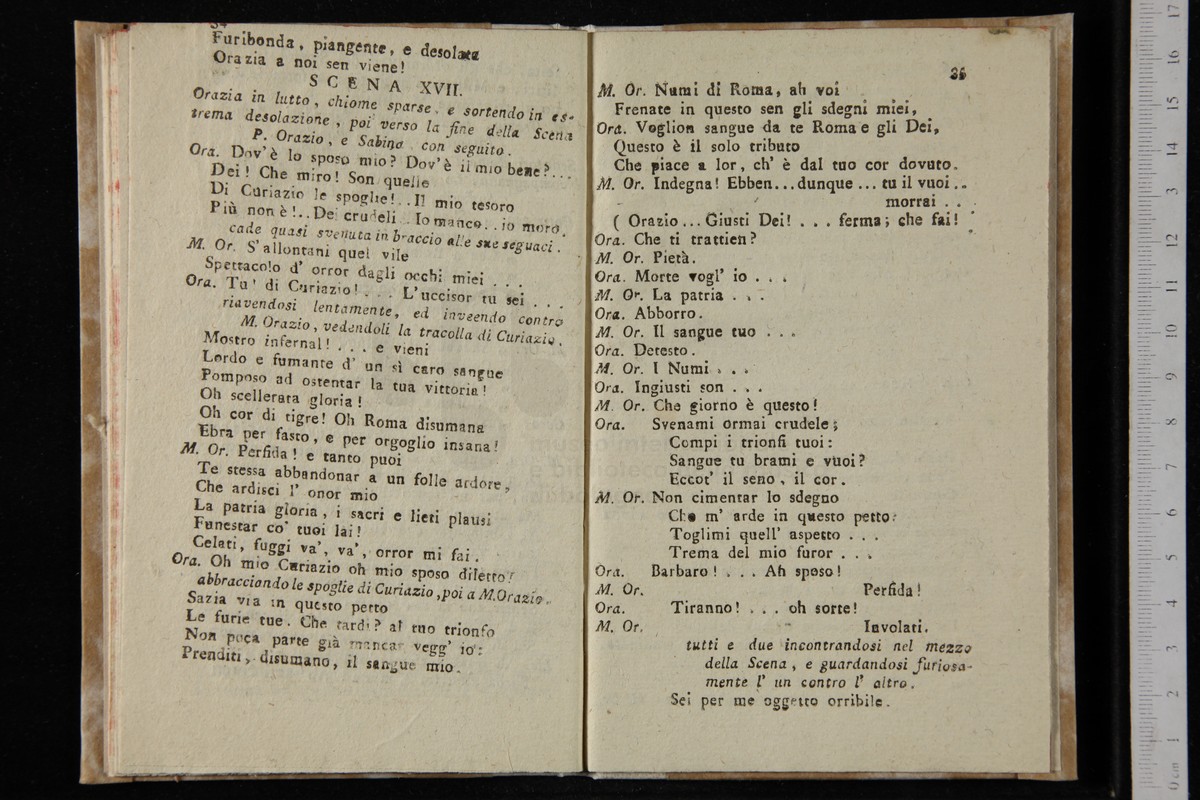 34
Furibonda, piangente, e desolata
Orazia a noi sen viene!
SCENA XVII.
Orazia in lutto, chiome sparse, e sortendo in es-
trema desolazione, poi verso la fine della Scena
P. Orazio, e Sabina con seguito.
Ora. Dov'è lo sposo mio? Dov'è il mio bene?...
Dei! Che miro! Son quelle
Di Curiazio le spoglie!..Il mio tesoro
Più non è!..Dei crudeli..Io manco..io moro.
cade quasi svenuta in braccio alle sue seguaci.
M. Or. S'allontani quel vile
Spettacolo d' orror dagli occhi miei . . .
Ora. Tu' di Curiazio! . . . L'uccisor tu sei . . .
riavendosi lentamente, ed inveendo contro
M. Orazio, vedendoli la tracolla di Curiazio.
Mostro infernal! . . . e vieni
Lordo e fumante d' un sì caro sangue
Pomposo ad ostentar la tua vittoria!
Oh scellerata gloria!
Oh cor di tigre! Oh Roma disumana
Ebra per fasto, e per orgoglio insana!
M. Or. Perfida! e tanto puoi
Te stessa abbandonar a un folle ardore,
Che ardisci l' onor mio
La patria gloria, i sacri e lieti plausi
Funestar co' tuoi lai!
Celati, fuggi va', va', orror mi fai.
Ora. Oh mio Curiazio oh mio sposo diletto!
abbracciando le spoglie di Curiazio, poi a M.Orazio.
Sazia via in questo petto
Le furie tue. Che tardi? al tuo trionfo
Non poca parte già mancar vegg' io:
Prenditi, disumano, il sangue mio.
35
M. Or. Numi di Roma, ah voi
Frenate in questo sen gli sdegni miei,
Ora. Voglion sangue da te Roma e gli Dei,
Questo è il solo tributo
Che piace a lor, ch' è dal tuo cor dovuto.
M. Or. Indegna! Ebben...dunque ... tu il vuoi..
morrai . .
( Orazio ... Giusti Dei! . . . ferma; che fai!
Ora. Che ti trattien?
M. Or. Pietà.
Ora. Morte vogl' io . . .
M. Or. La patria . . .
Ora. Abborro.
M. Or. Il sangue tuo . . .
Ora. Detesto.
M. Or. I Numi . . .
Ora. Ingiusti son . . .
M. Or. Che giorno è questo!
Ora. Svenami ormai crudele;
Compi i trionfi tuoi:
Sangue tu brami e vuoi?
Eccot' il seno, il cor.
M. Or. Non cimentar lo sdegno
Che m' arde in questo petto:
Toglimi quell' aspetto . . .
Trema del mio furor . . .
Ora. Barbaro! . . . Ah sposo!
M. Or. Perfida!
Ora. Tiranno! . . . oh sorte!
M. Or. Involati.
tutti e due incontrandosi nel mezzo
della Scena, e guardandosi furiosa-
mente l' un contro l' altro.
Sei per me oggetto orribile.